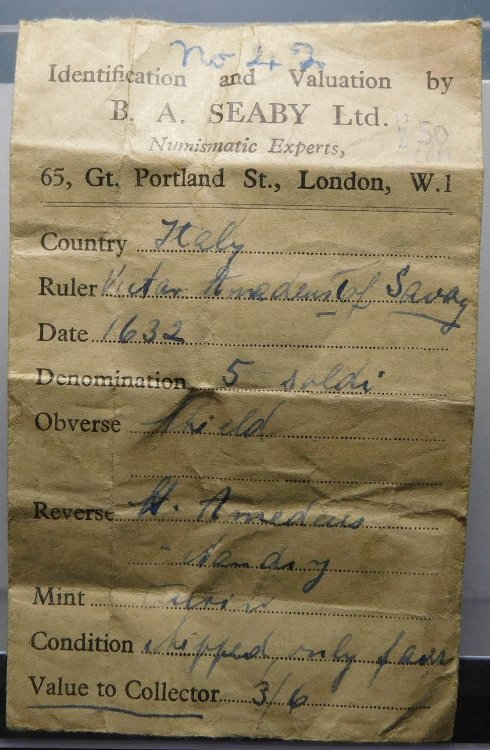 No 42
Identification and Valuation by
B. A. SEABY Ltd.
Numismatic Experts,
65, Gt. Portland St., London, W.1
Country Italy
Ruler Victor Amadeus I of Savoy
Date 1632
Denomination 5 soldi
Obverse Shield
Reverse St. Amedeus
standing
Mint Turin
Condition chipped, only fair
Value to Collector 3/6